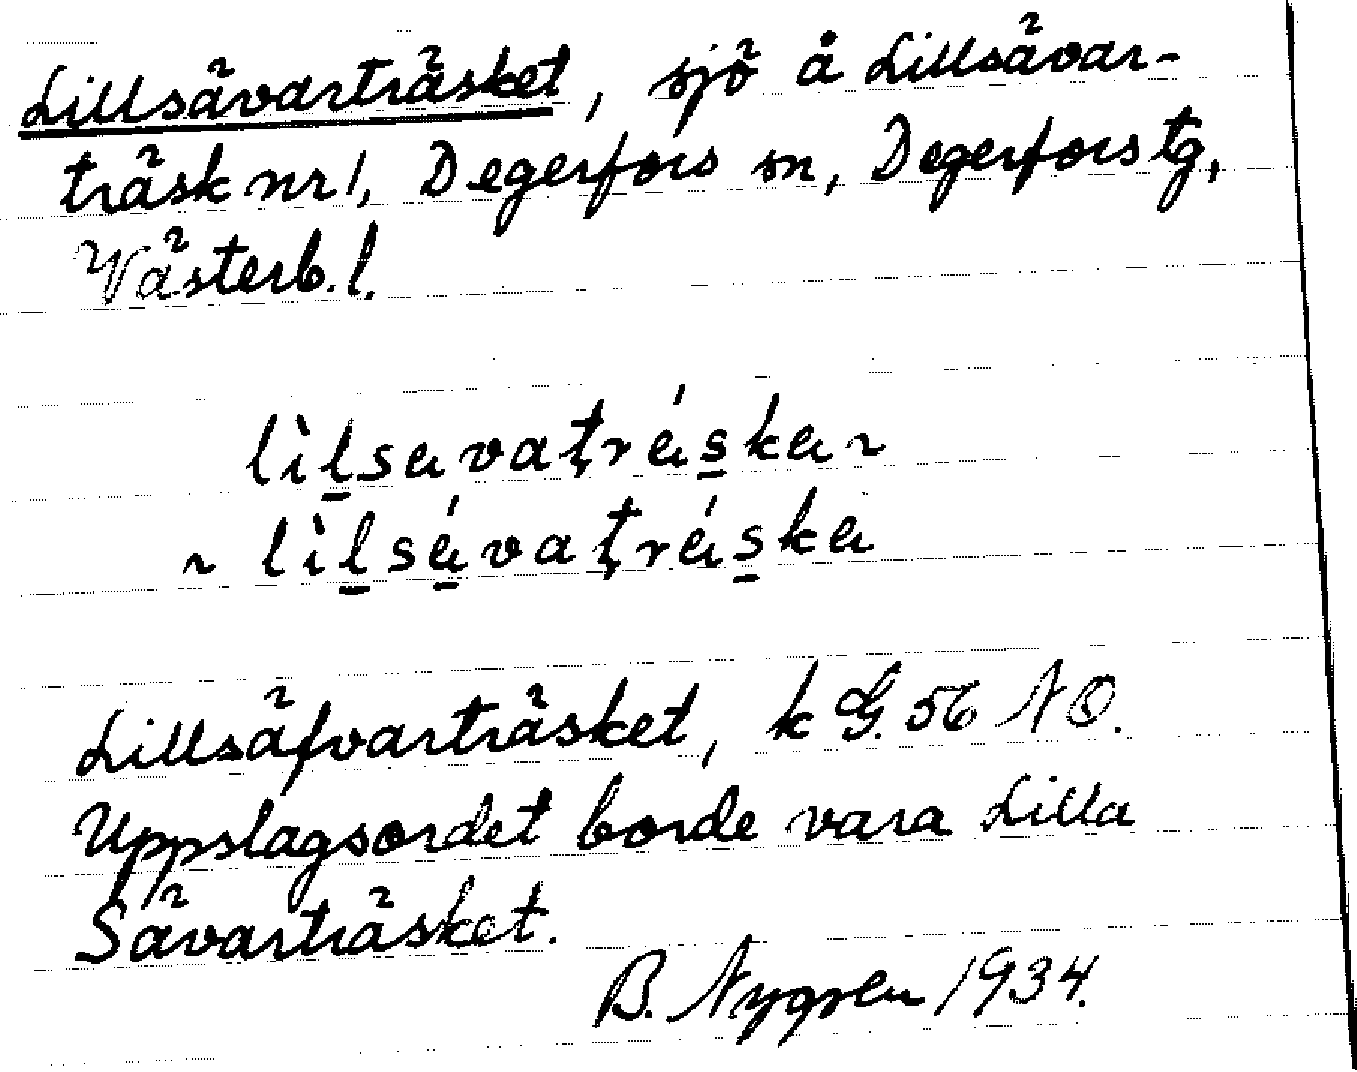 Lillsävarträsket, sjö å Lillsävar-
träsk nr 1, Degerfors sn, Degerfors tg,
Västerb. l.
lìl̲savaţrás̲ka ~
~ lìl̲sá̲vaţrás̲ka
Lillsäfvarträsket, k G. 56 NO.
Uppslagsordet borde vara Lilla
Sävarträsket.
B. Nygren 1934.